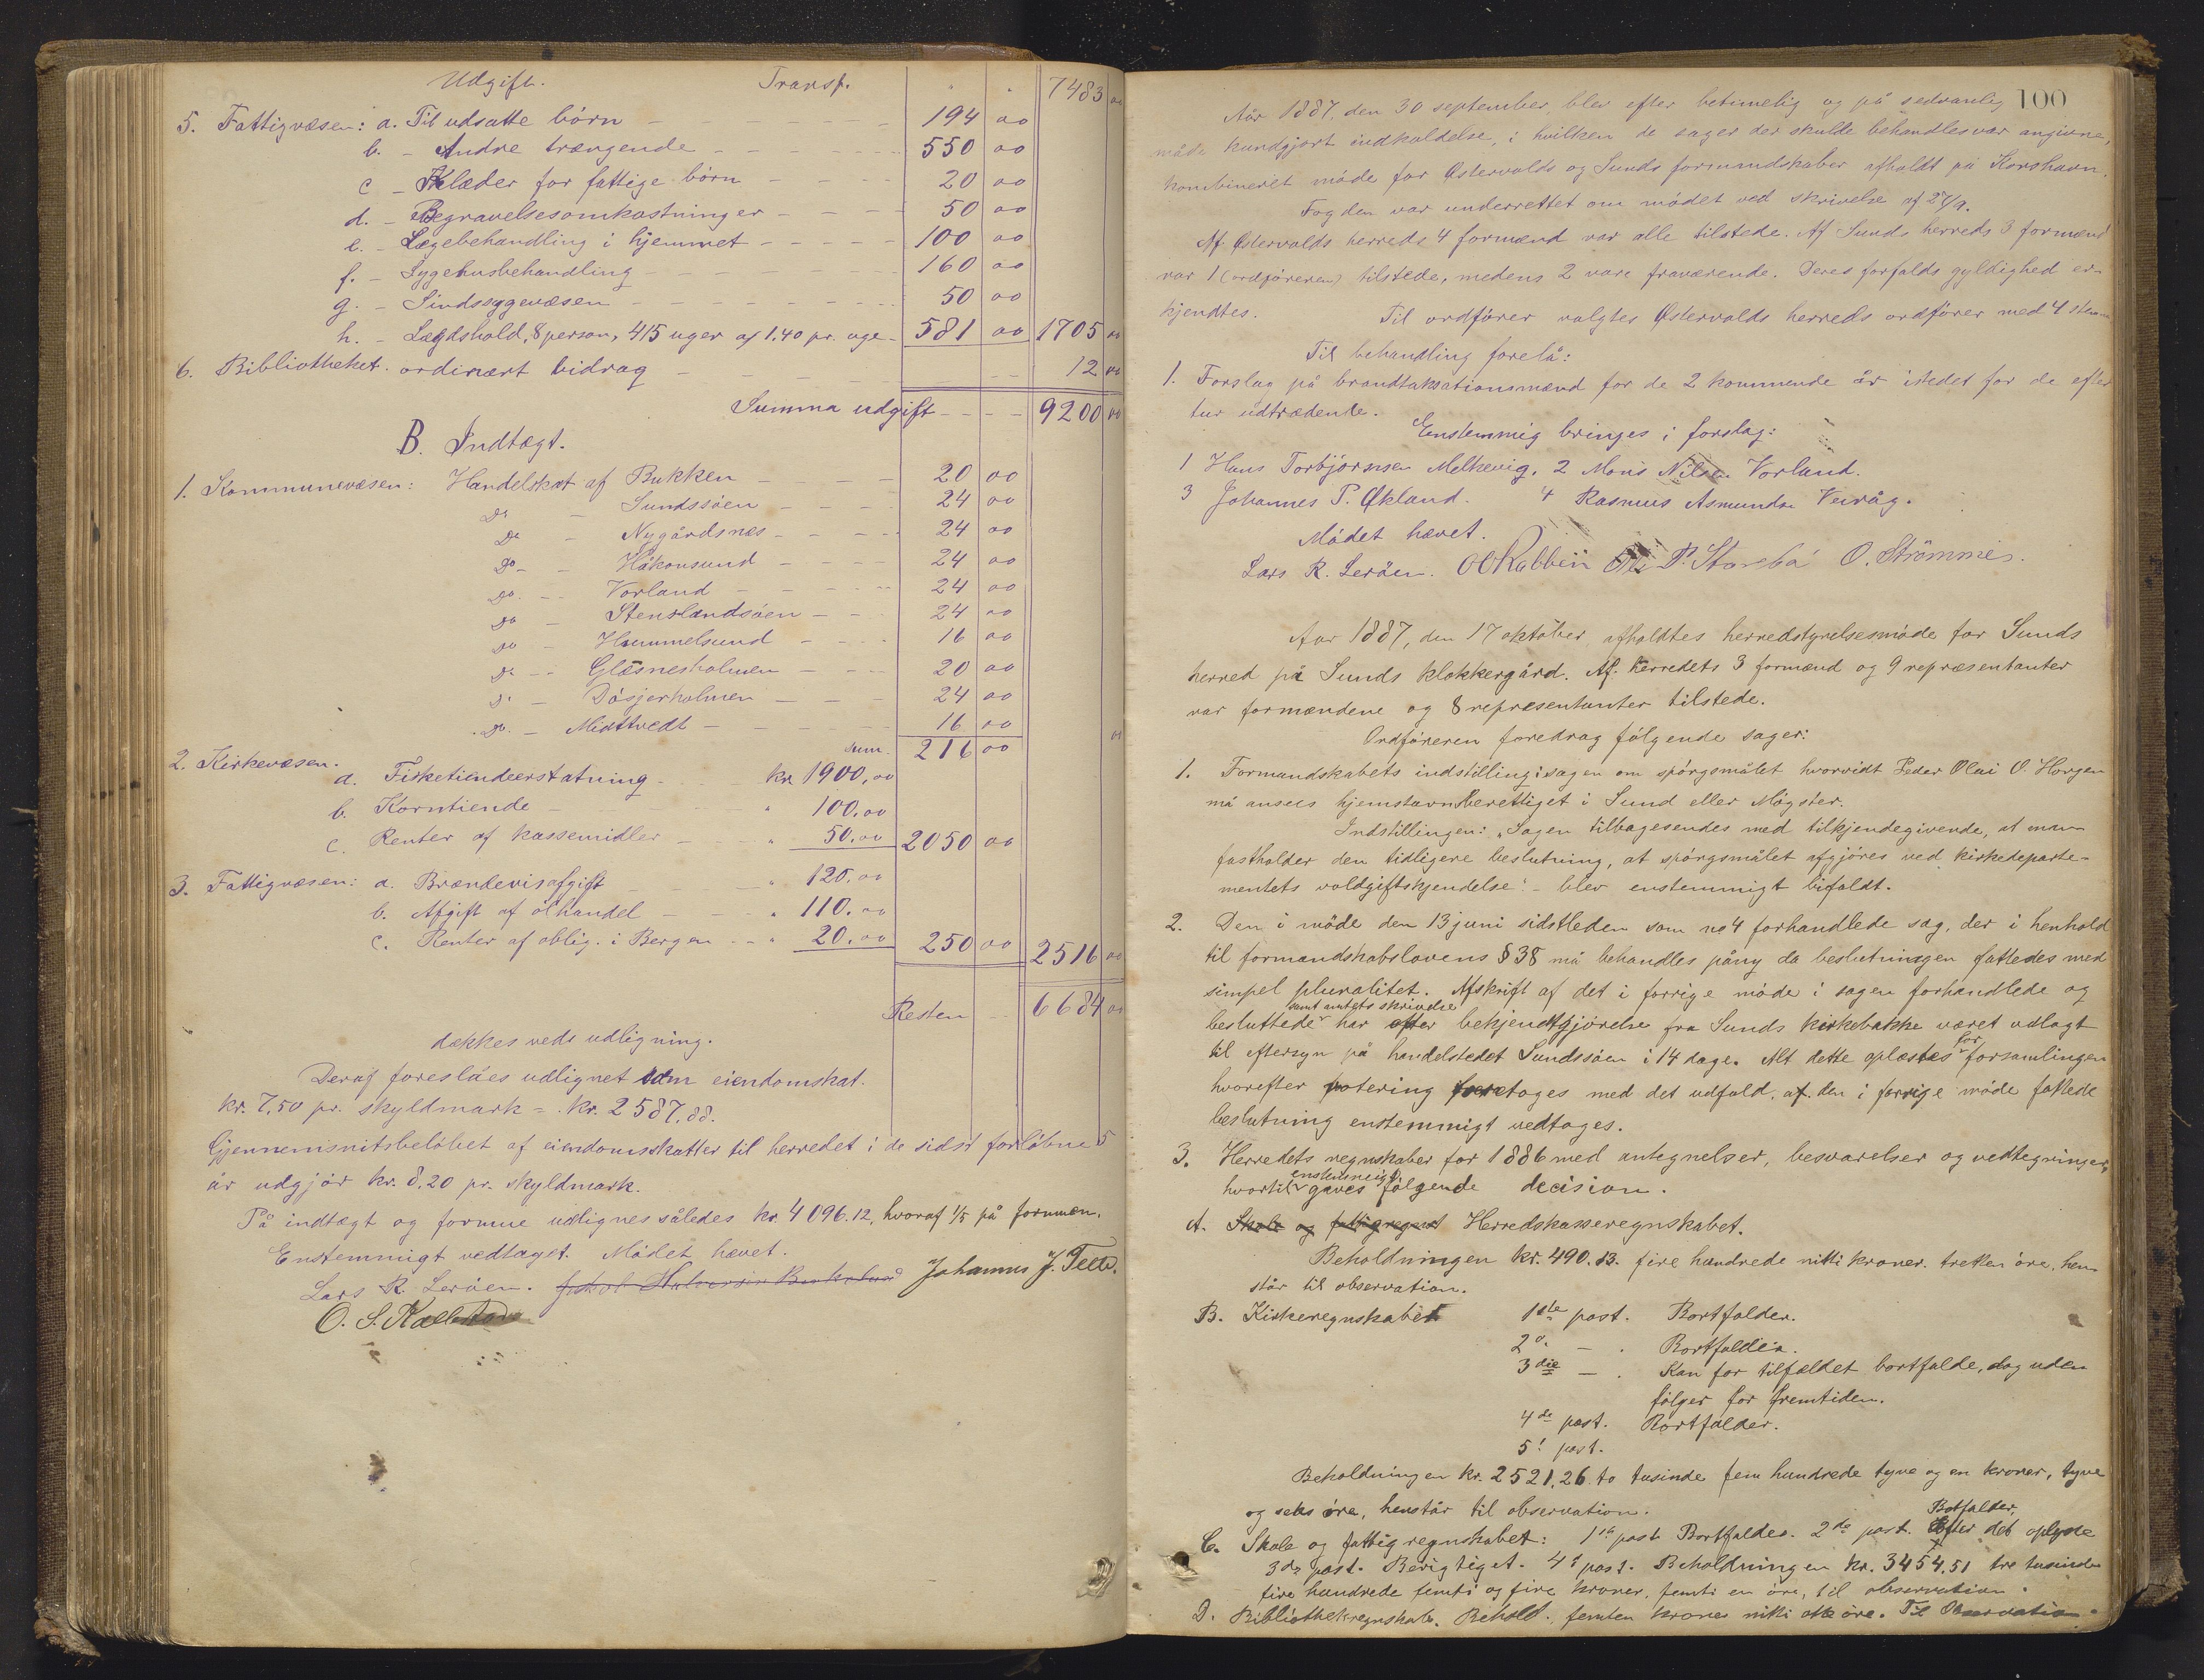 Udgift. Transp. 7483 00
5. Fattigvæsen: a. Til udsatte børn 194 00
b. - Andre trængende 550 00
c - Klæder for fattige børn 20 00
d. - Begravelsesomkostninger 50 00
e. - Lægebehandling i hjemmet 100 00
f. - Sygehusbehandling 160 00
g. - Sindssygevæsen 50 00
h. - Lægdshold, 8 person, 415 uger af 1.40 pr. uge 581 00 1705 00
6. Bibliotheket. ordinært bidrag 12 00
Summa udgift 9200 00
B. Indtægt.
1. Kommunevæsen: Handelskat af Bukken 20 00
Do - Sundsöen 24 00
Do - Nygårdsnes 24 00
Do - Håkonsund 24 00
Do. - Vorland 24 00
Do - Stenslandsöen 24 00
Do - Hummelsund 16 00
Do - Glesnesholmen 20 00
Do - Dösjerholmen 24 00
Do. - Midttvedt 16 00
sum. 216 00
2. Kirkevæsen.
a. Fisketiendeerstatning kr 1900,00
b. Korntiende " 100.00
c. Renter af kassemidler " 50.00 2050 00
3. Fattigvæsen: a. Brændevisafgift " 120.00
b. Afgift af ölhandel " 110.00
c. Renter af oblig. i Bergen " 20.00 250 00 2516 00
Resten 6684 00
dækkes veds udligning.
Deraf foreslåes udlignet som eiendomskat.
kr. 7,50 pr. skyldmark = kr. 2587,88.
Gjennemsnitsbelöbet af eiendomsskatter til herredet i de sidst forlöbne 5
år udgjör kr. 8.20 pr. skyldmark.
På indtægt og formue udlignes således kr. 4096.12, hvoraf 1/5 på formuen.
Enstemmigt vedtaget. Mödet hævet.
Lars R. Leröen. Johannes J. Telle.
O. S. Kallestad
100
Aar 1887, den 30 september, blev efter betimelig og på sedvanlig
måde kundgjort indkaldelse, i hvilken de sager der skulde behandles var angivne,
kombineret möde for Östervolds og Sunds formandskaber afholdt på Korshavn.
Fogden var underrettet om mödet ved skrivelse af 27/9.
Af Østervolds herreds 4 formænd var alle tilstede. Af Sunds herreds 3 formænd
var 1 (ordföreren) tilstede, medens 2 vare fraværende. Deres forfalds gyldighed er-
kjendtes. Til ordförer valgtes Østervolds herreds ordförer med 4 stem
Til behandling forelå:
1. Forslag på brandtaksationsmænd for de 2 kommende år istedet for de efter
tur udtrædente.
Enstemmig bringes i forslag:
1 Hans Torbjörnsen Melkevig. 2 Mons Nilsen Vorland.
3 Johannes P. Økland. 4 Rasmus Asmundse Veivåg.
Mödet hævet.
Lars R. Leröen. O O Rabben P. Storebö O. Strömmes.
Aar 1887, den 17 oktober, afholdtes herredstyrelsesmöde for Sunds
herred på Sunds klokkergård. Af herredets 3 formænd og 9 repræsentanter
var formændene og 8 representanter tilstede.
Ordföreren foredrag fölgende sager:
1. Formandskabets indstilling i sagen om spörgsmålet hvorvidt Peder Olai O. Horgen
må ansees hjemstavnsberettiget i Sund eller Mögster.
Indstillingen: "Sagen tilbagesendes med tilkjendegivende, at man
fastholder den tidligere beslutning, at spörgsmålet afgjöres ved kirkedeparte-
mentets voldgiftskjendelse" - blev enstemmigt bifaldt.
2. Den i möde den 13 juni sidstleden som no 4 forhandlede sag, der i henhold
til formandskabslovens § 38 må behandles påny da beslutningen fattedes med
simpel pluralitet. Afskrift af det i forrige möde i sagen forhandlede og
samt amtets skrivelse
besluttede har efter bekjendtgjörelse fra Sunds kirkebakke været udlagt
til eftersyn på handelstedet Sundsöen i 14 dage. Alt dette oplæstes for forsamlingen
hvorefter votering foretages med det udfald, at den i forrige möde fattede
beslutning enstemmigt vedtoges.
3. Herredets regnskaber for 1886 med antegnelser, besvarelser og vedtegninger,
enstemmigt
hvortil gaves fölgende decision.
A. Skole og fattigregnst Herredskasseregnskabet.
Beholdningen kr. 490.13. fire hundrede nitti kroner. tretten öre, hen-
står til observation.
B. Kirkeregnskabet 1ste post. Bortfalder.
2o - . Bortfalder.
3die - . Kan for tilfældet bortfalde, dog uden
fölger for fremtiden.
4de post. Bortfalder.
5! post.
Beholdningen kr. 2521.26 to tusinde fem hundrede tyve og en kroner, tyve
og seks öre, henstår til observation.
Botfalder,
C. Skole og fattigregnskabet: 1ste post Bortfalder. 2de post. Efter det oplyste
3die post. Berigtiget. 4! post. Beholdningen kr. 3454,51 tre tusinde
fire hundrede femti og fire kroner, femti en öre, til observation.
D. Bibliothekregnskab. Behold. femten kroner nitti otte öre. Til Observation.